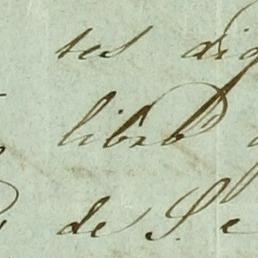 tes dig
libro
de S. e